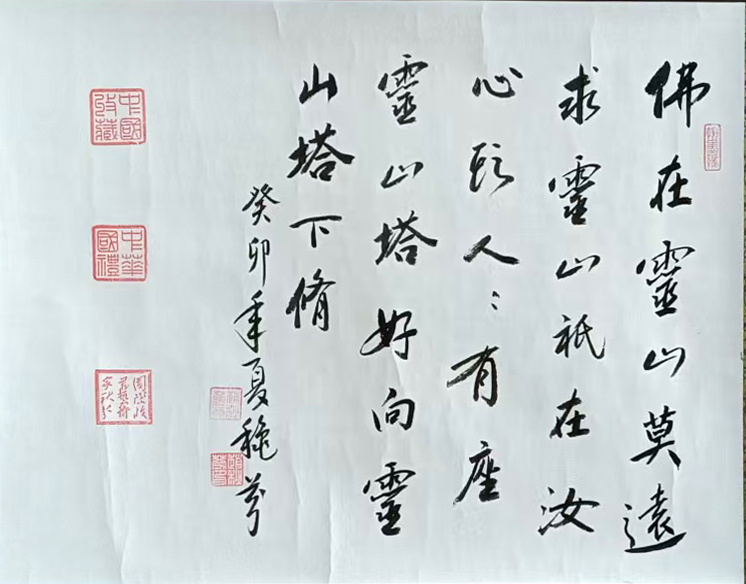 佛在靈山莫遠
求靈山祇在汝
心頭人々有座
靈山塔好向靈
山塔下脩
癸卯年夏穐芬
中國
收藏
中華
國禮